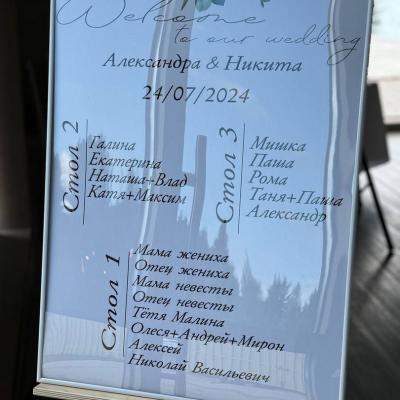 Welcome
to our wedding
Александра & Никита
24/07/2024
Стол 2
Галина
Екатерина
Наташа+Влад
Катя+Максим
Стол 3
Мишка
Паша
Рома
Таня+Паша
Александр
Стол 1
Мама жениха
Отец жениха
Мама невесты
Отец невесты
Тётя Малина
Олеся+Андрей+Мирон
Алексей
Николай Васильевич